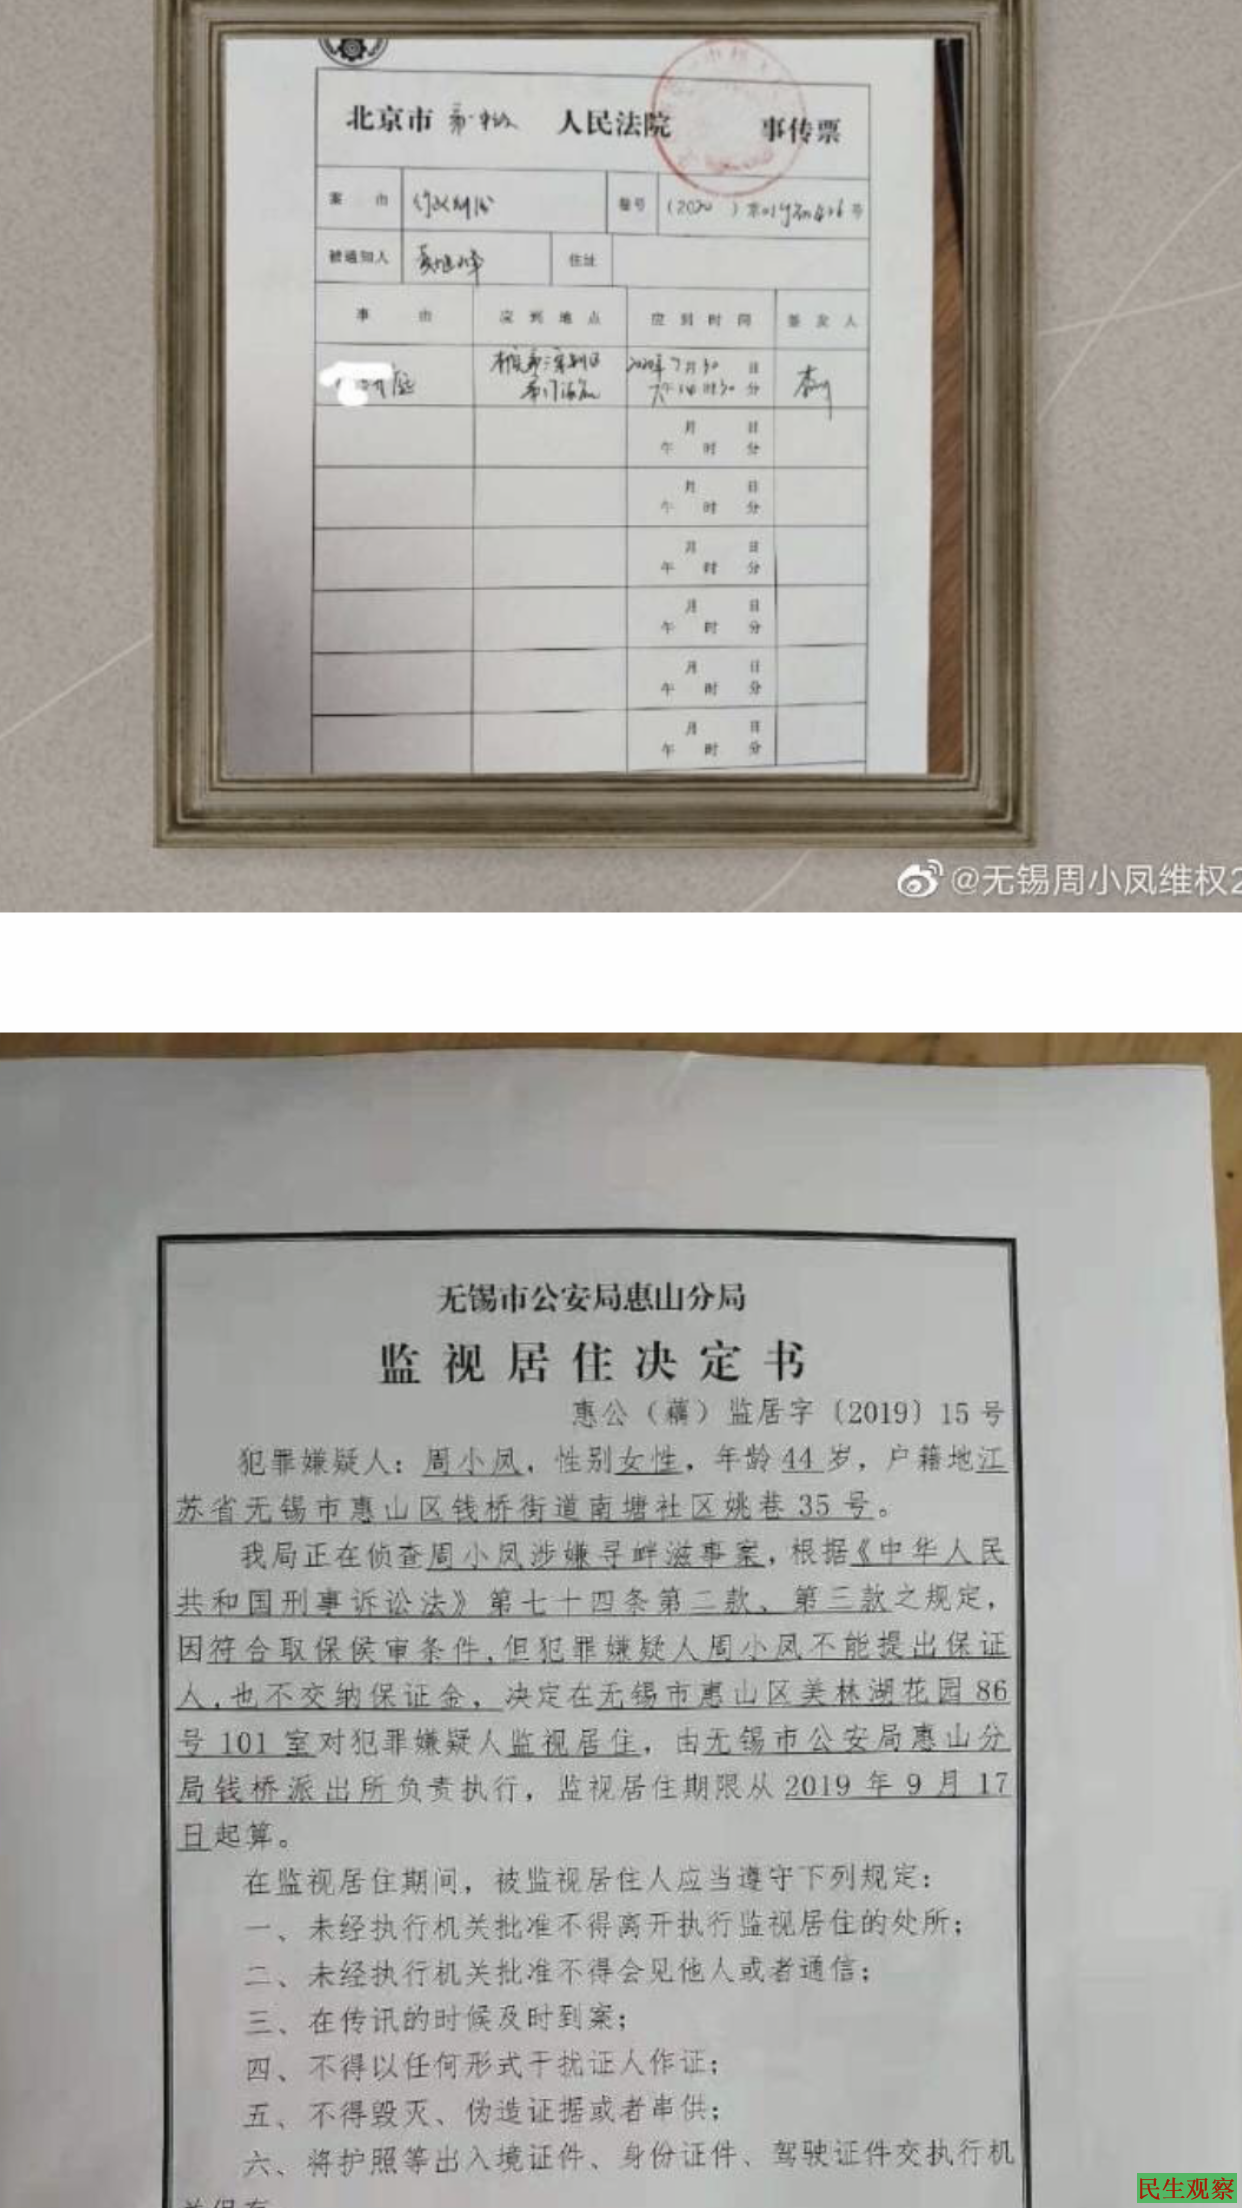 北京市 人民法院 事传票
案 由 案号 (2020)
被通知人 住址
事 由 应到地点 应到时间 签发人
2020年7月30日
月 日
午 时 分
月 日
午 时 分
月 日
午 时 分
月 日
午 时 分
月 日
午 时 分
月 日
午 时 分
@无锡周小凤维权2
无锡市公安局惠山分局
监视居住决定书
惠公(藕)监居字〔2019〕15号
犯罪嫌疑人:周小凤,性别女性,年龄44岁,户籍地江
苏省无锡市惠山区钱桥街道南塘社区姚巷35号。
我局正在侦查周小凤涉嫌寻衅滋事案,根据《中华人民
共和国刑事诉讼法》第七十四条第二款、第三款之规定,
因符合取保侯审条件,但犯罪嫌疑人周小凤不能提出保证
人,也不交纳保证金,决定在无锡市惠山区美林湖花园86
号101室对犯罪嫌疑人监视居住,由无锡市公安局惠山分
局钱桥派出所负责执行,监视居住期限从2019年9月17
日起算。
在监视居住期间,被监视居住人应当遵守下列规定:
一、未经执行机关批准不得离开执行监视居住的处所;
二、未经执行机关批准不得会见他人或者通信;
三、在传讯的时候及时到案;
四、不得以任何形式干扰证人作证;
五、不得毁灭、伪造证据或者串供;
六、将护照等出入境证件、身份证件、驾驶证件交执行机
民生观察